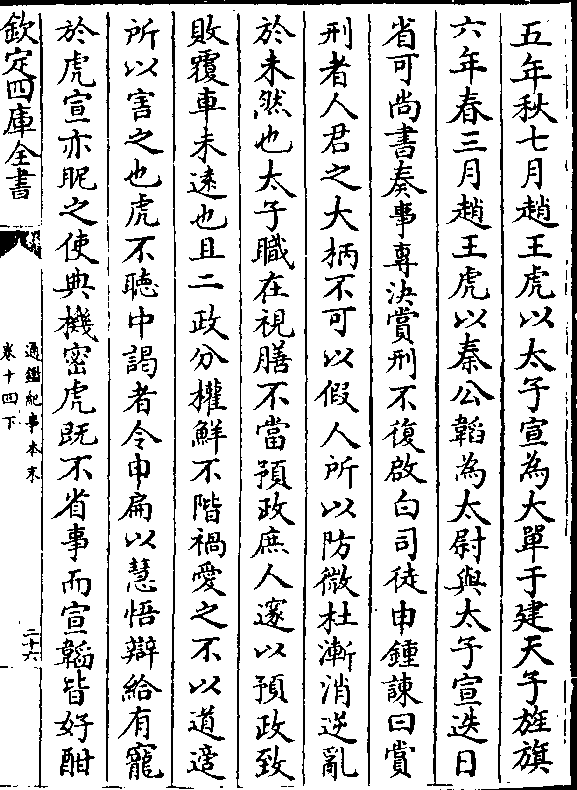 五年秋七月趙王虎以太子宣為大單于建天子旌旗
六年春三月趙王虎以秦公韜為太尉與太子宣迭日
省可尚書奏事專決賞刑不復啟白司徒申鍾諫曰賞
刑者人君之大柄不可以假人所以防微杜漸消逆亂
於未然也太子職在視膳不當預政庶人邃以預政致
敗覆車未逺也且二政分權鮮不階禍愛之不以道適
所以害之也虎不聽中謁者令申扁以慧悟辯給有寵
於虎宣亦昵之使典機密虎既不省事而宣韜皆好酣
欽定四庫全書
通鑑紀事本末
卷十四下
二十六